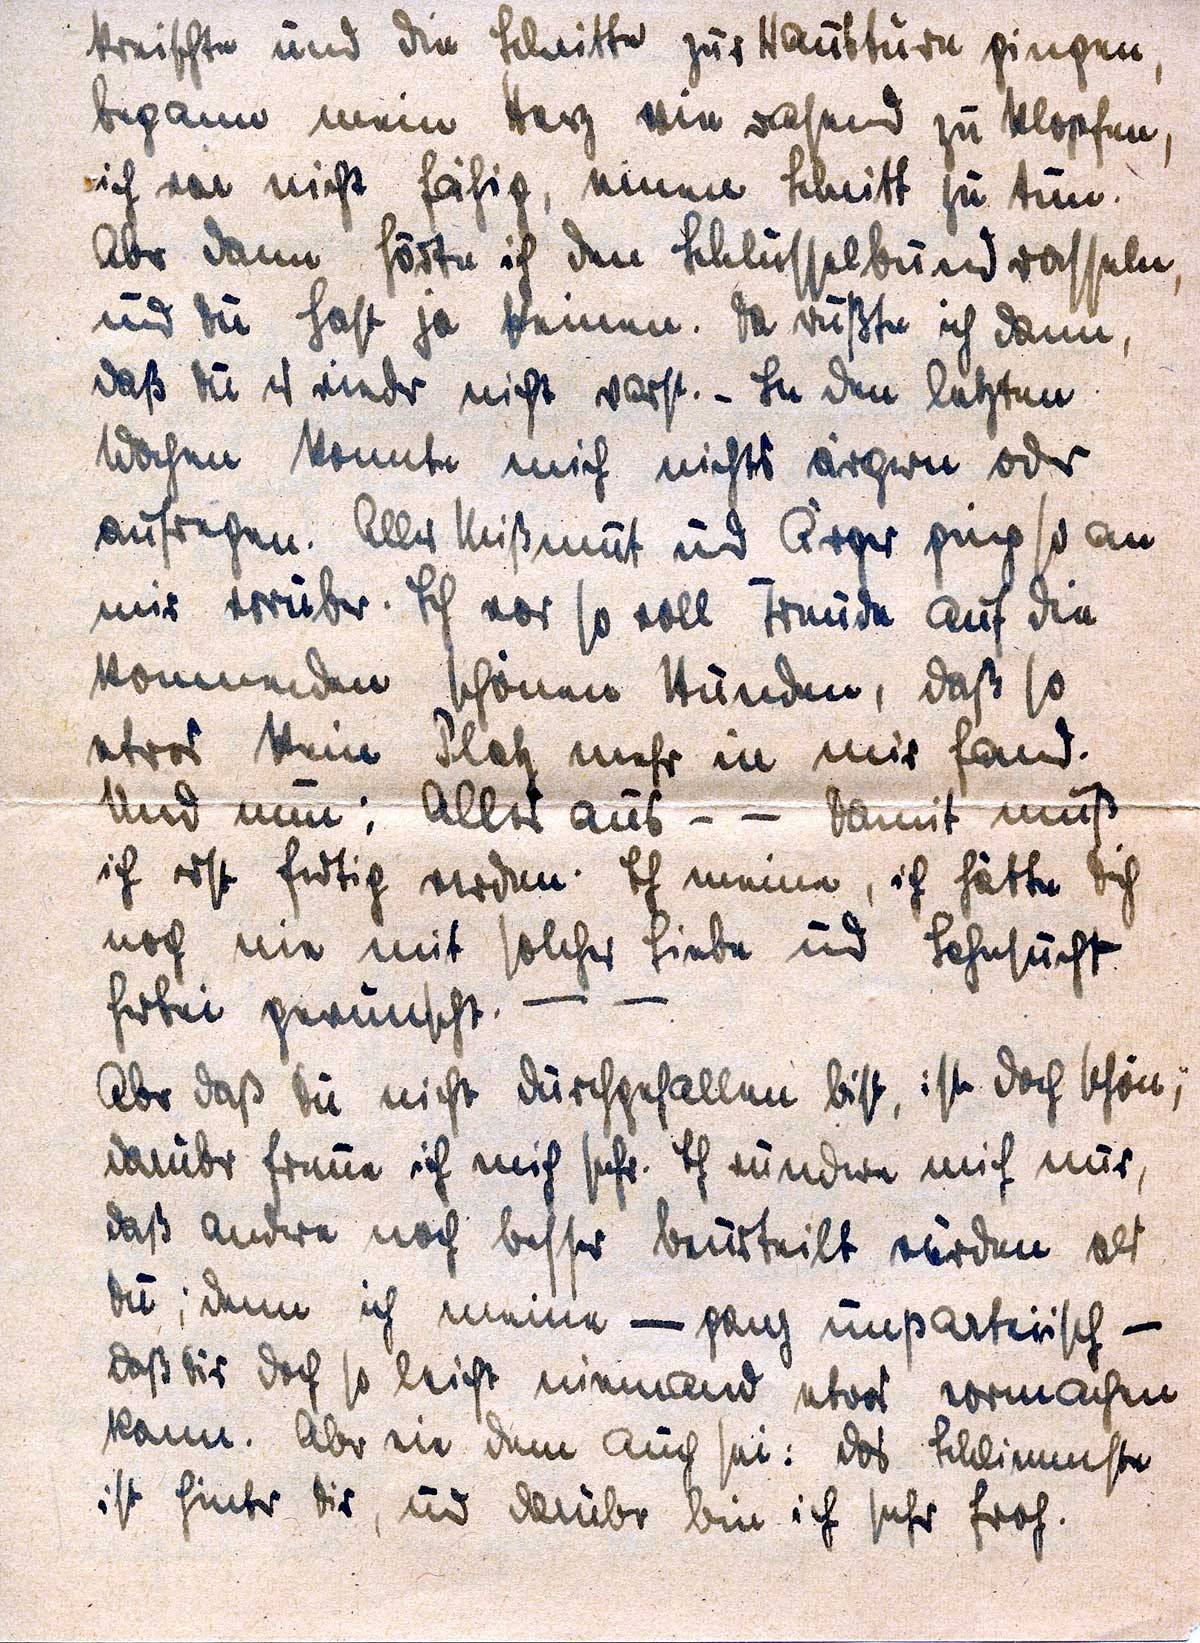 kreischte und die Schritte zur Haustüre gingen,
begann mein Herz wie rasend zu klopfen,
ich war nicht fähig, einen Schritt zu tun.
Aber dann hörte ich den Schlüsselbund rasseln,
und Du hast ja keinen. Da wußte ich dann,
daß Du es wieder nicht warst. – In den letzten
Wochen konnte mich nichts ärgern oder
aufregen. Aller Mißmut und Ärger ging so an
mir vorüber. Ich war so voll Freude auf die
kommenden schönen Stunden, daß so
etwas kein Platz mehr in mir fand.
Und nun; Alles aus – – Damit muß
ich erst fertig werden. Ich meine, ich hätte Dich
noch nie mit solcher Liebe und Sehnsucht
herbei gewünscht. — —
Aber daß Du nicht durchgefallen bist, ist doch schön,
darüber freue ich mich sehr. Ich wundere mich nur,
daß andere noch besser beurteilt wurden als
Du; denn ich meine — ganz unparteiisch —
daß Dir doch so leicht niemand etwas vormachen
kann. Aber wie dem auch sei: das Schlimmste
ist hinter Dir, und darüber bin ich sehr froh.